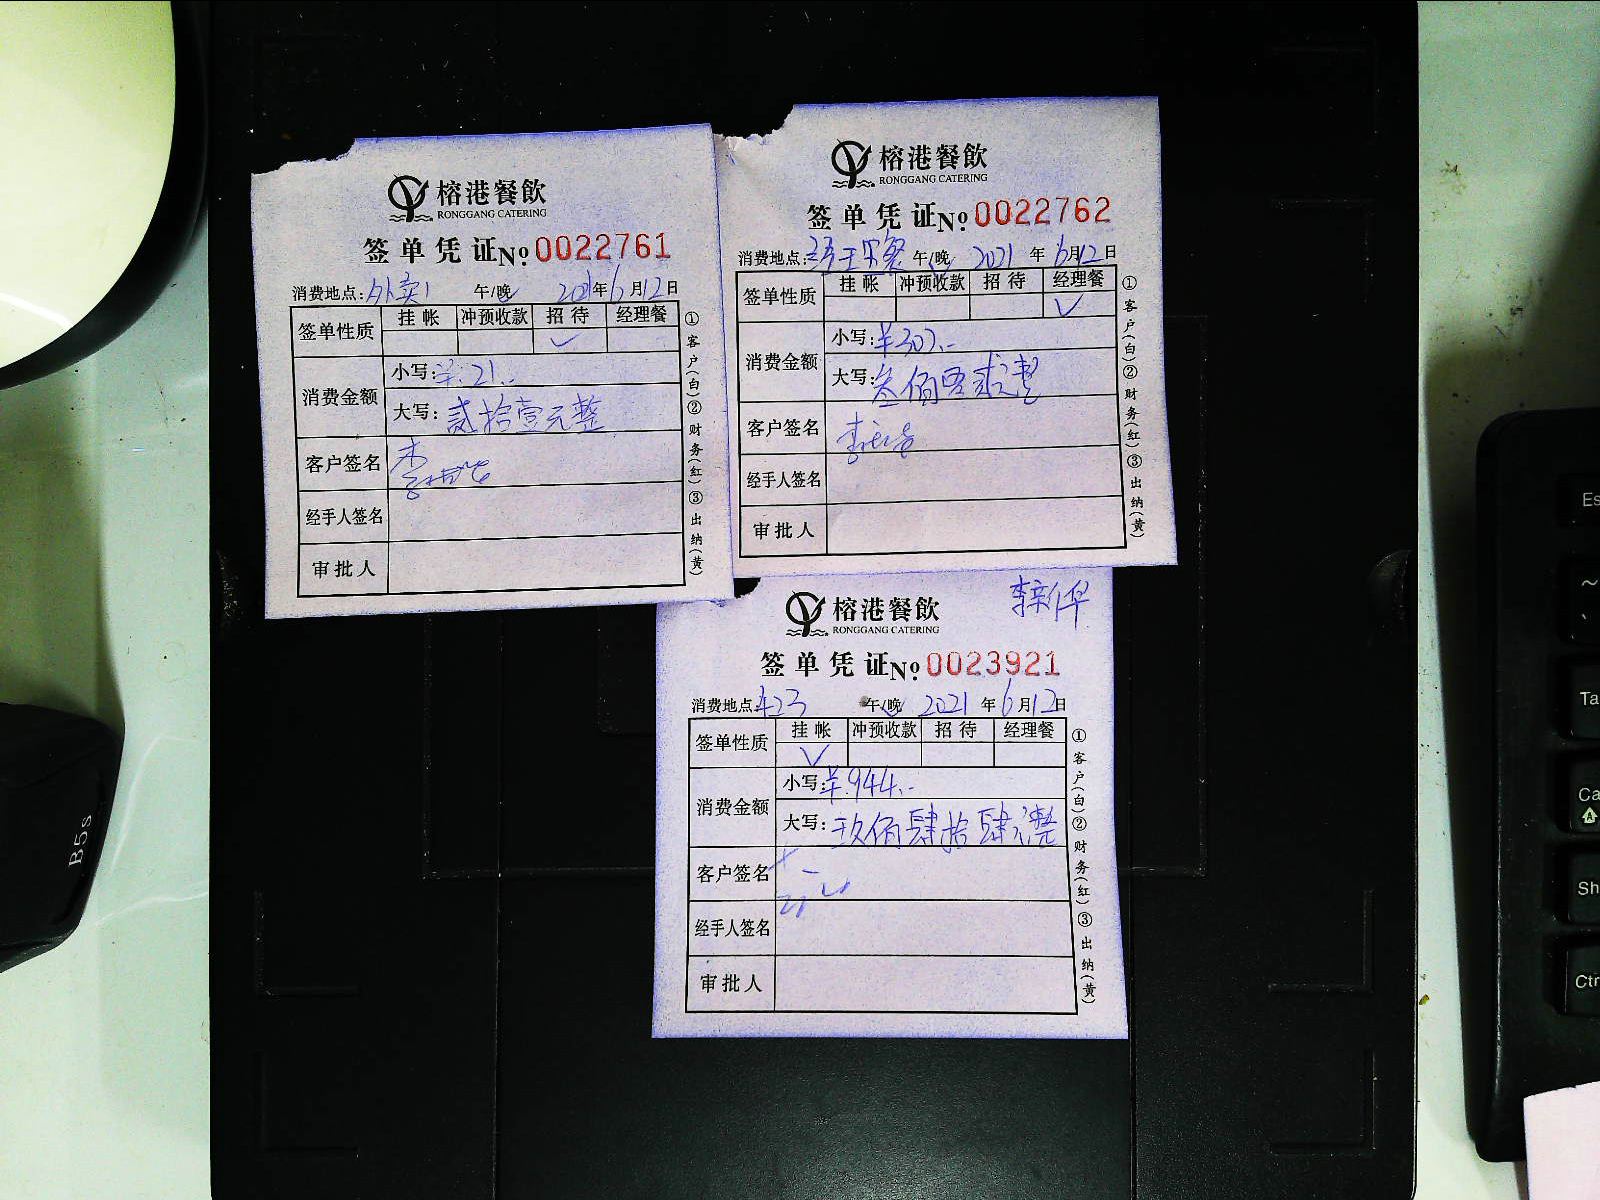 榕港餐飲
RONGGANG CATERING
签单凭证 No 0022761
消费地点:外卖1 午/晚 2021年6月12日
签单性质 挂帐 冲预收款 招待 经理餐
✓
消费金额 小写:¥:21.-
大写:贰拾壹元整
客户签名
经手人签名
审批人
①客户(白)②财务(红)③出纳(黄)
榕港餐飲
RONGGANG CATERING
签单凭证 No 0022762
消费地点: 午/晚 2021年6月12日
签单性质 挂帐 冲预收款 招待 经理餐
✓
消费金额 小写:¥
大写:叁佰
客户签名
经手人签名
审批人
①客户(白)②财务(红)③出纳(黄)
榕港餐飲
RONGGANG CATERING
签单凭证 No 0023921
消费地点: 午/晚 2021年6月12日
签单性质 挂帐 冲预收款 招待 经理餐
✓
消费金额 小写:¥.944.-
大写:玖佰肆拾肆元整
客户签名
经手人签名
审批人
①客户(白)②财务(红)③出纳(黄)
B5s
Es
~
Ta
Ca
Sh
Ctr